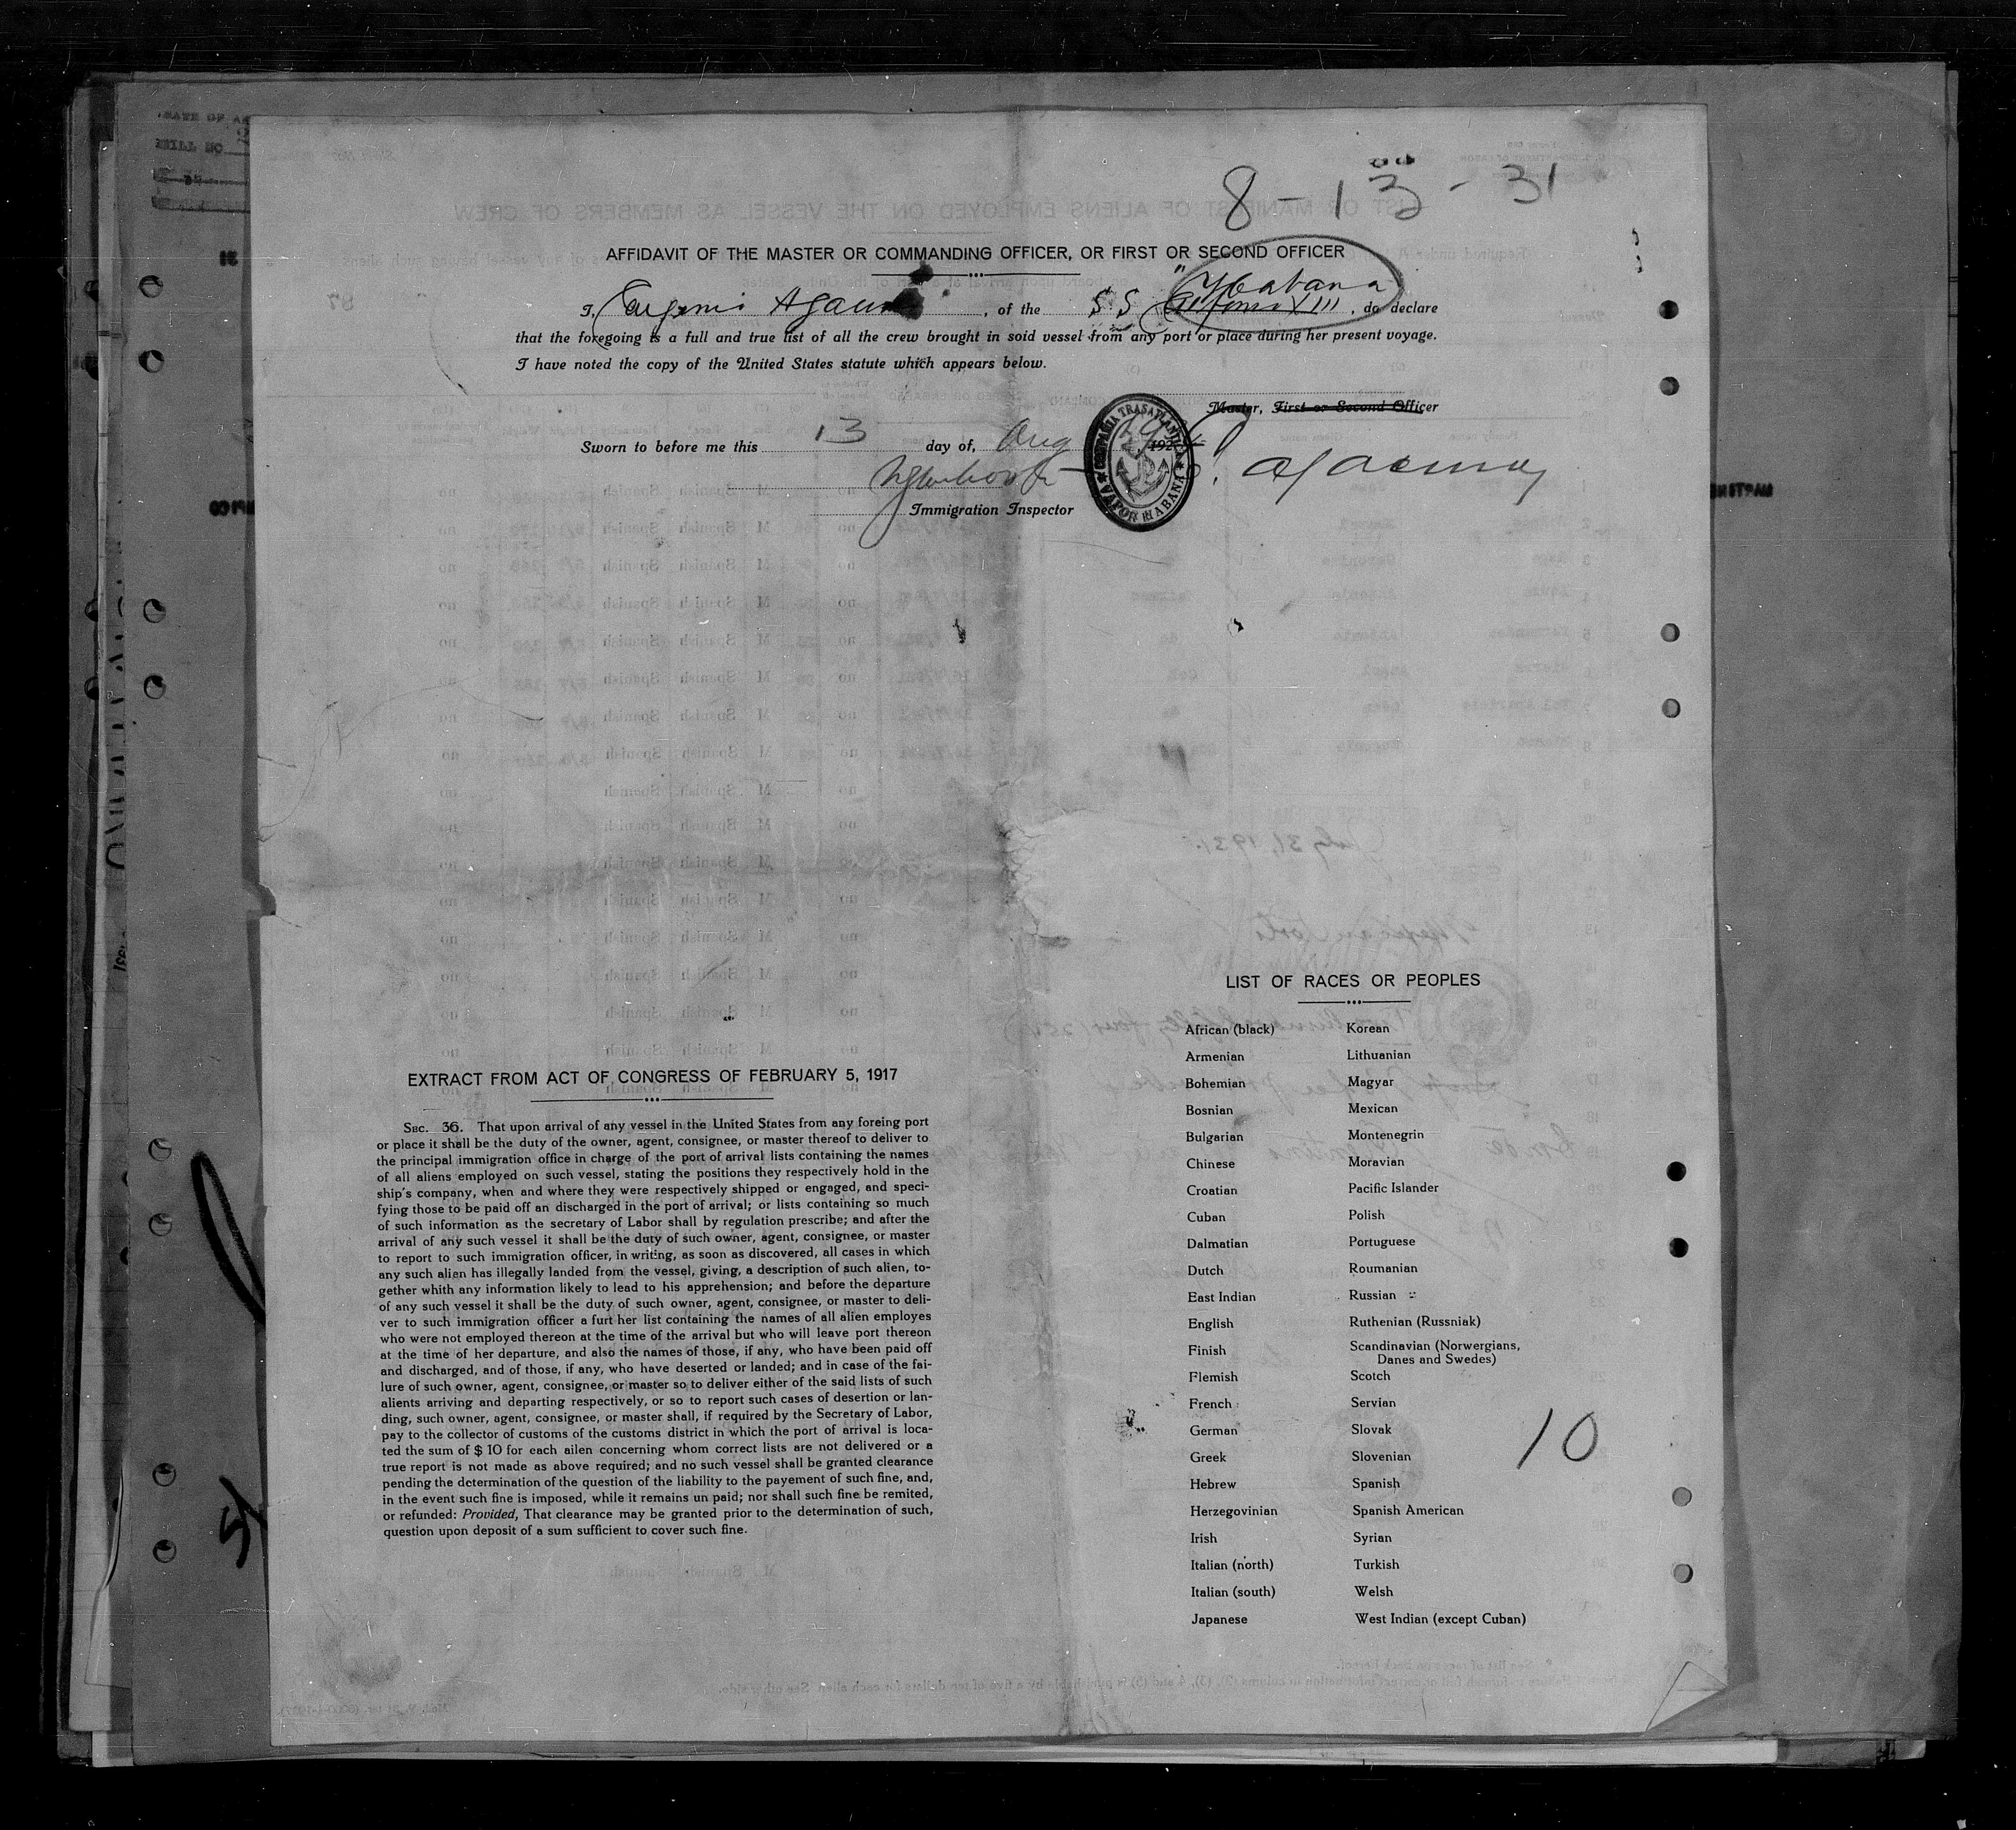 8-13-31
AFFIDAVIT OF THE MASTER OR COMMANDING OFFICER, OR FIRST OR SECOND OFFICER
"Habana
I, Eugenio , of the S S Alfonso XIII , do declare
that the foregoing is a full and true list of all the crew brought in soid vessel from any port or place during her present voyage.
I have noted the copy of the United States statute which appears below.
Master, First or Second Officer
Sworn to before me this 13 day of, Aug 192
COMPAÑIA TRASATLANTICA
VAPOR HABANA
Immigration Inspector
LIST OF RACES OR PEOPLES
African (black) Korean
Armenian Lithuanian
Bohemian Magyar
Bosnian Mexican
Bulgarian Montenegrin
Chinese Moravian
Croatian Pacific Islander
Cuban Polish
Dalmatian Portuguese
Dutch Roumanian
East Indian Russian
English Ruthenian (Russniak)
Finish Scandinavian (Norwergians,
Danes and Swedes)
Flemish Scotch
French Servian
German Slovak
Greek Slovenian
Hebrew Spanish
Herzegovinian Spanish American
Irish Syrian
Italian (north) Turkish
Italian (south) Welsh
Japanese West Indian (except Cuban)
10
EXTRACT FROM ACT OF CONGRESS OF FEBRUARY 5, 1917
SEC. 36. That upon arrival of any vessel in the United States from any foreing port
or place it shall be the duty of the owner, agent, consignee, or master thereof to deliver to
the principal immigration office in charge of the port of arrival lists containing the names
of all aliens employed on such vessel, stating the positions they respectively hold in the
ship's company, when and where they were respectively shipped or engaged, and speci-
fying those to be paid off an discharged in the port of arrival; or lists containing so much
of such information as the secretary of Labor shall by regulation prescribe; and after the
arrival of any such vessel it shall be the duty of such owner, agent, consignee, or master
to report to such immigration officer, in writing, as soon as discovered, all cases in which
any such alien has illegally landed from the vessel, giving, a description of such alien, to-
gether whith any information likely to lead to his apprehension; and before the departure
of any such vessel it shall be the duty of such owner, agent, consignee, or master to deli-
ver to such immigration officer a furt her list containing the names of all alien employes
who were not employed thereon at the time of the arrival but who will leave port thereon
at the time of her departure, and also the names of those, if any, who have been paid off
and discharged, and of those, if any, who have deserted or landed; and in case of the fai-
lure of such owner, agent, consignee, or master so to deliver either of the said lists of such
alients arriving and departing respectively, or so to report such cases of desertion or lan-
ding, such owner, agent, consignee, or master shall, if required by the Secretary of Labor,
pay to the collector of customs of the customs district in which the port of arrival is loca-
ted the sum of $ 10 for each ailen concerning whom correct lists are not delivered or a
true report is not made as above required; and no such vessel shall be granted clearance
pending the determination of the question of the liability to the payement of such fine, and,
in the event such fine is imposed, while it remains un paid; nor shall such fine be remited,
or refunded: Provided, That clearance may be granted prior to the determination of such,
question upon deposit of a sum sufficient to cover such fine.